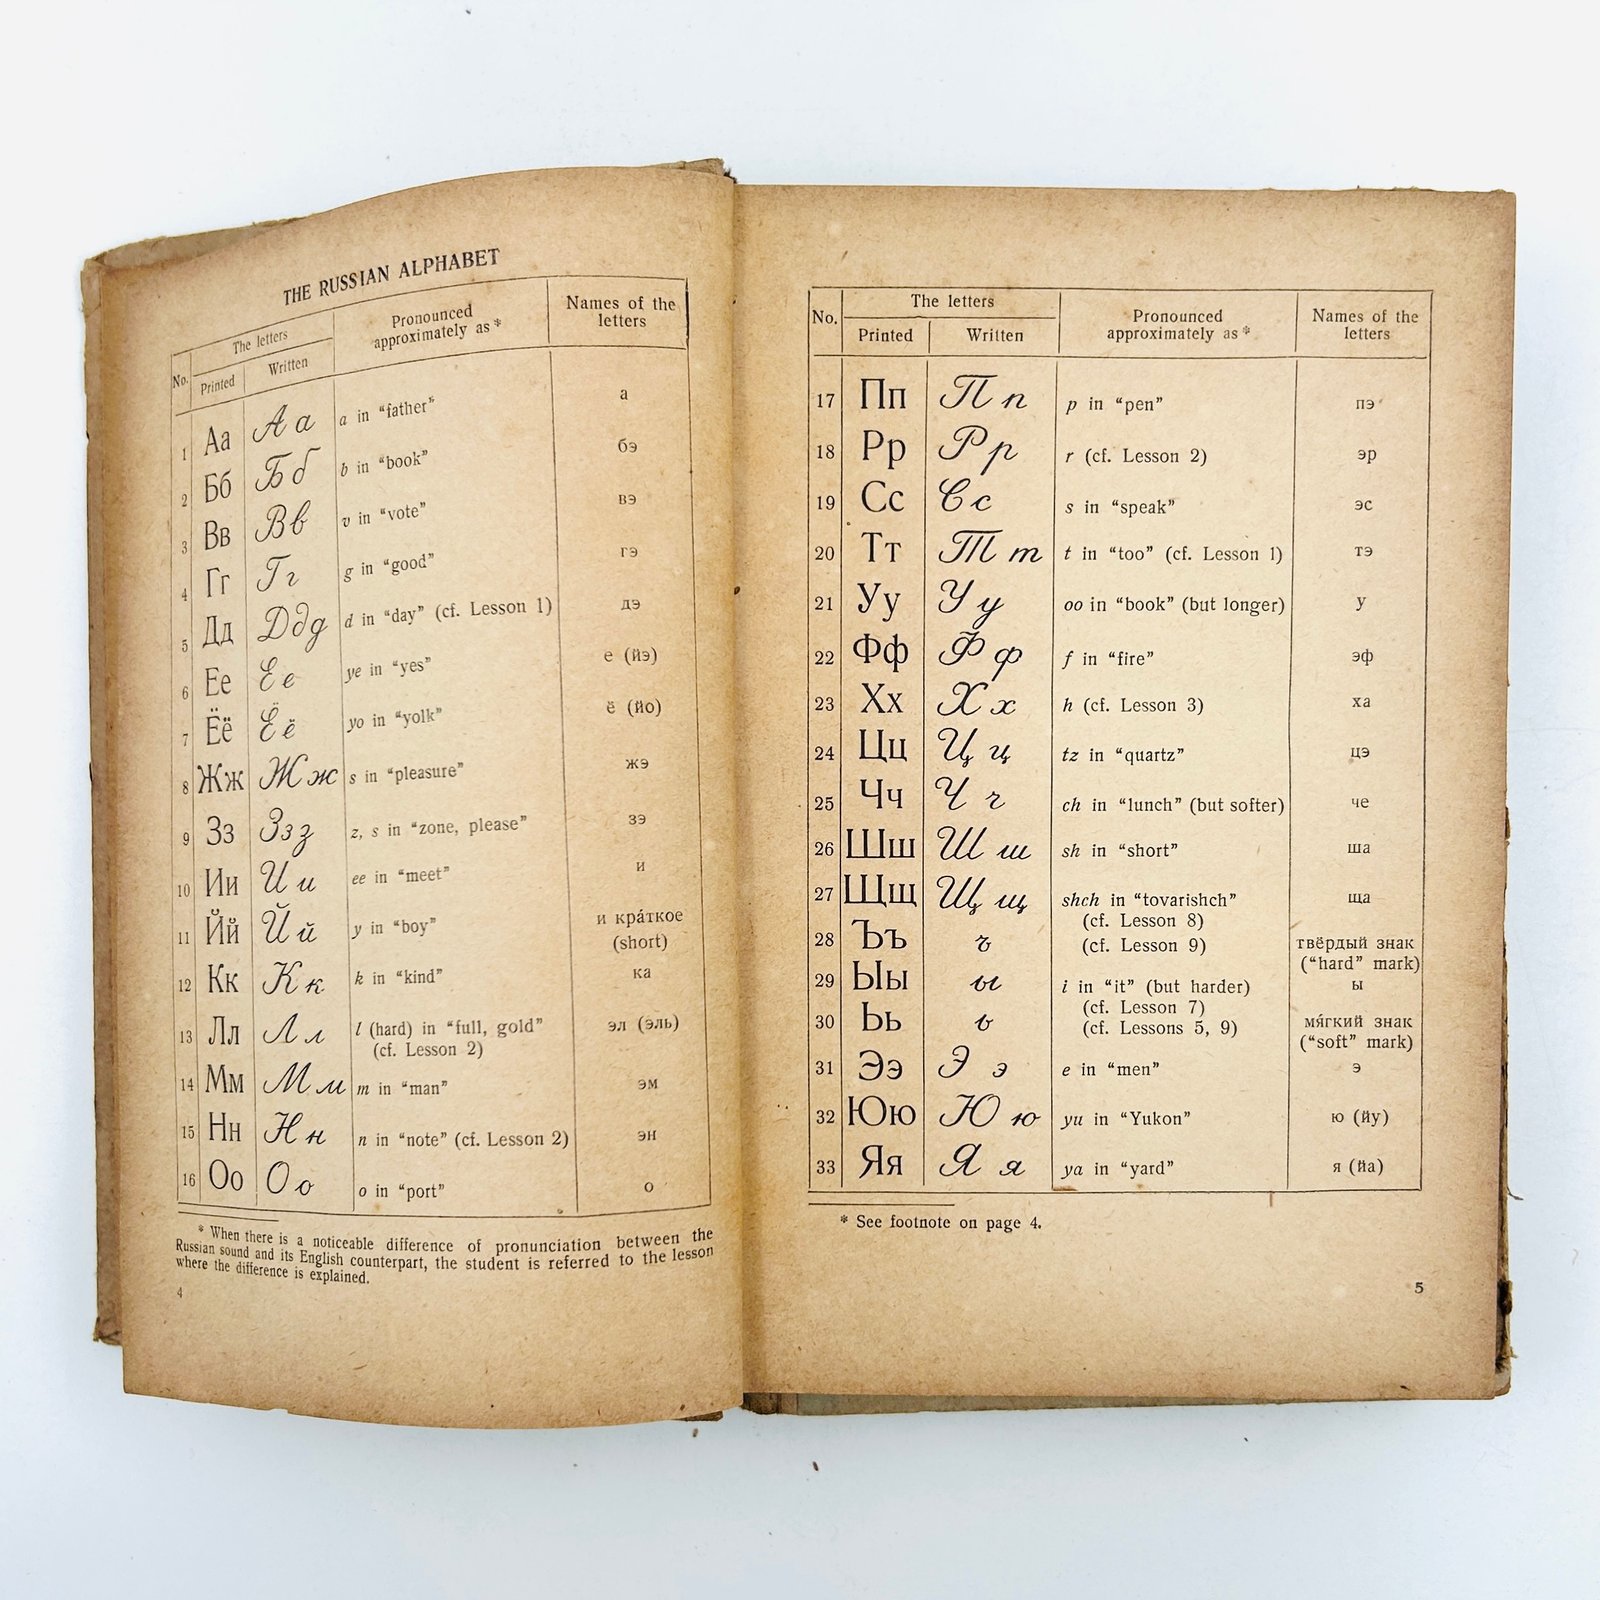 THE RUSSIAN ALPHABET
No. The letters Pronounced approximately as * Names of the letters
Printed Written
1 Аа А а a in “father” а
2 Бб Б б b in “book” бэ
3 Вв В в v in “vote” вэ
4 Гг Г г g in “good” гэ
5 Дд Д д g d in “day” (cf. Lesson 1) дэ
6 Ее Е е ye in “yes” е (йэ)
7 Ёё Ё ё yo in “yolk” ё (йо)
8 Жж Ж ж s in “pleasure” жэ
9 Зз З з з z, s in “zone, please” зэ
10 Ии И и ee in “meet” и
11 Йй Й й y in “boy” и кра́ткое
(short)
12 Кк К к k in “kind” ка
13 Лл Л л l (hard) in “full, gold” эл (эль)
(cf. Lesson 2)
14 Мм М м m in “man” эм
15 Нн Н н n in “note” (cf. Lesson 2) эн
16 Оо О о o in “port” о
* When there is a noticeable difference of pronunciation between the
Russian sound and its English counterpart, the student is referred to the lesson
where the difference is explained.
4
No. The letters Pronounced approximately as * Names of the letters
Printed Written
17 Пп П п p in “pen” пэ
18 Рр Р р r (cf. Lesson 2) эр
19 Сс С с s in “speak” эс
20 Тт Т т t in “too” (cf. Lesson 1) тэ
21 Уу У у oo in “book” (but longer) у
22 Фф Ф ф f in “fire” эф
23 Хх Х х h (cf. Lesson 3) ха
24 Цц Ц ц tz in “quartz” цэ
25 Чч Ч ч ch in “lunch” (but softer) че
26 Шш Ш ш sh in “short” ша
27 Щщ Щ щ shch in “tovarishch” ща
(cf. Lesson 8)
28 Ъъ ъ (cf. Lesson 9) твёрдый знак
(“hard” mark)
29 Ыы ы i in “it” (but harder) ы
(cf. Lesson 7)
30 Ьь ь (cf. Lessons 5, 9) мя́гкий знак
(“soft” mark)
31 Ээ Э э e in “men” э
32 Юю Ю ю yu in “Yukon” ю (йу)
33 Яя Я я ya in “yard” я (йа)
* See footnote on page 4.
5